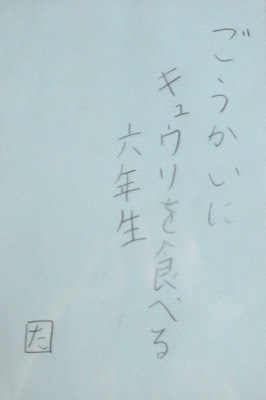 ごうかいに
キュウリを食べる
六年生
た